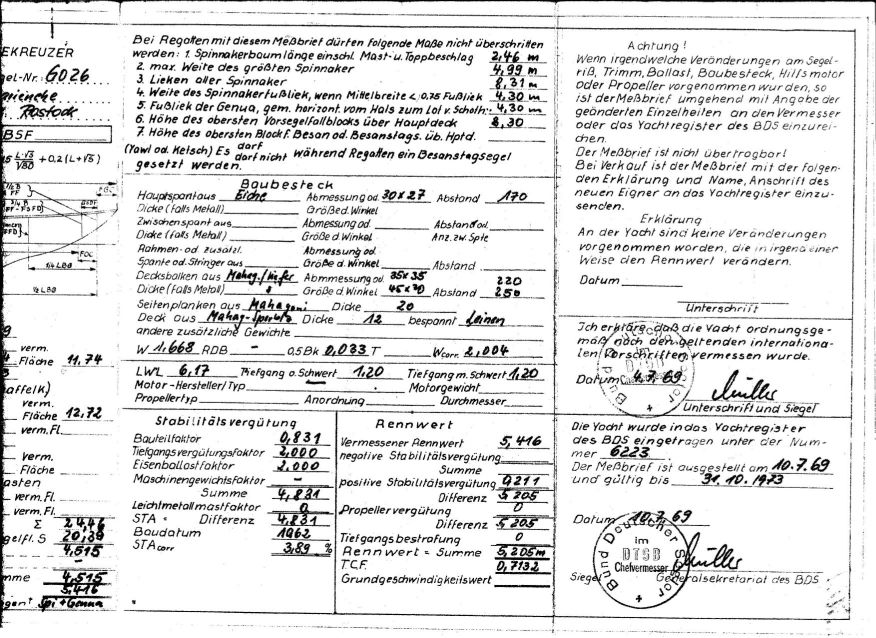 EKREUZER
gel-Nr. GO26
Rostock
BSF
+0,2(L+√S)
¼ LBG
½ LBG
FOC
verm.
Fläche 11,74
affel(K)
verm.
Fläche 12,72
verm.Fl.
Verm.
Fläche
asten
verm.Fl.
verm.Fl.
Σ 24,46
gelfl. S 20,39
4,515
mme 4,515
5,416
Spi + Genua
Bei Regatten mit diesem Meßbrief dürfen folgende Maße nicht überschritten
werden: 1. Spinnakerbaumlänge einschl. Mast- u. Toppbeschlag 2,46 m
2. max. Weite des größten Spinnaker 4,99 m
3. Lieken aller Spinnaker 8,31 m
4. Weite des Spinnakerfußliek, wenn Mittelbreite < 0,75 Fußliek 4,30 m
5. Fußliek der Genua, gem. horizont. vom Hals zum Lot v. Schoth.: 4,30 m
6. Höhe des obersten Vorsegelfallblocks über Hauptdeck 8,30
7. Höhe des obersten Blockf. Besan od. Besanstags. üb. Hptd.
(Yawl od. Ketsch) Es darf
darf nicht während Regatten ein Besanstagsegel
gesetzt werden.
Baubesteck
Hauptspant aus Eiche Abmessung od. 30 x 27 Abstand 170
Dicke (falls Metall) Größe d. Winkel
Zwischenspant aus Abmessung od. Abstand od.
Dicke (falls Metall) Größe d. Winkel Anz. zw. Spte
Rahmen- od. zusätzl. Abmessung od.
Spante od. Stringer aus Größe d. Winkel Abstand
Decksbalken aus Mahag./Kiefer Abmmessung od. 35 x 35 220
Dicke (falls Metall) Größe d. Winkel 45 x 70 Abstand 250
Seitenplanken aus Mahagoni Dicke 20
Deck aus Mahag-Sperrholz Dicke 12 bespannt Leinen
andere zusätzliche Gewichte
W 1,668 RDB - 0,5Bk 0,033 T Wcorr. 2,004
LWL 6,17 Tiefgang o. Schwert 1,20 Tiefgang m. Schwert 1,20
Motor-Hersteller/Typ Motorgewicht
Propellertyp Anordnung Durchmesser
Stabilitätsvergütung
Bauteilfaktor 0,831
Tiefgangsvergütungsfaktor 2,000
Eisenballastfaktor 2,000
Maschinengewichtsfaktor -
Summe 4,831
Leichtmetallmastfaktor 0
STA = Differenz 4,831
Baudatum 1962
STA corr 3,89 %
Rennwert
Vermessener Rennwert 5,416
negative Stabilitätsvergütung
Summe
positive Stabilitätsvergütung 0,211
Differenz 5,205
Propellervergütung 0
Differenz 5,205
Tiefgangsbestrafung 0
Rennwert = Summe 5,205 m
T.C.F. 0,7132
Grundgeschwindigkeitswert
Achtung!
Wenn irgendwelche Veränderungen am Segel-
riß, Trimm, Ballast, Baubesteck, Hilfsmotor
oder Propeller vorgenommen wurden, so
ist der Meßbrief umgehend mit Angabe der
geänderten Einzelheiten an den Vermesser
oder das Yachtregister des BDS einzurei-
chen.
Der Meßbrief ist nicht übertragbar!
Bei Verkauf ist der Meßbrief mit der folgen-
den Erklärung und Name, Anschrift des
neuen Eigner an das Yachtregister einzu-
senden.
Erklärung
An der Yacht sind keine Veränderungen
vorgenommen worden, die in irgend einer
Weise den Rennwert verändern.
Datum
Unterschrift
Ich erkläre, daß die Yacht ordnungsge-
mäß nach den geltenden internationa-
len Vorschriften vermessen wurde.
Datum 4.7.69 Müller
Unterschrift und Siegel
Die Yacht wurde in das Yachtregister
des BDS eingetragen unter der Num-
mer 6223.
Der Meßbrief ist ausgestellt am 10.7.69
und gültig bis 31.10.1973
Datum 10.7.69
Bund Deutscher Segler
im
DTSB
Chefvermesser
Müller
Siegel Generalsekretariat des BDS